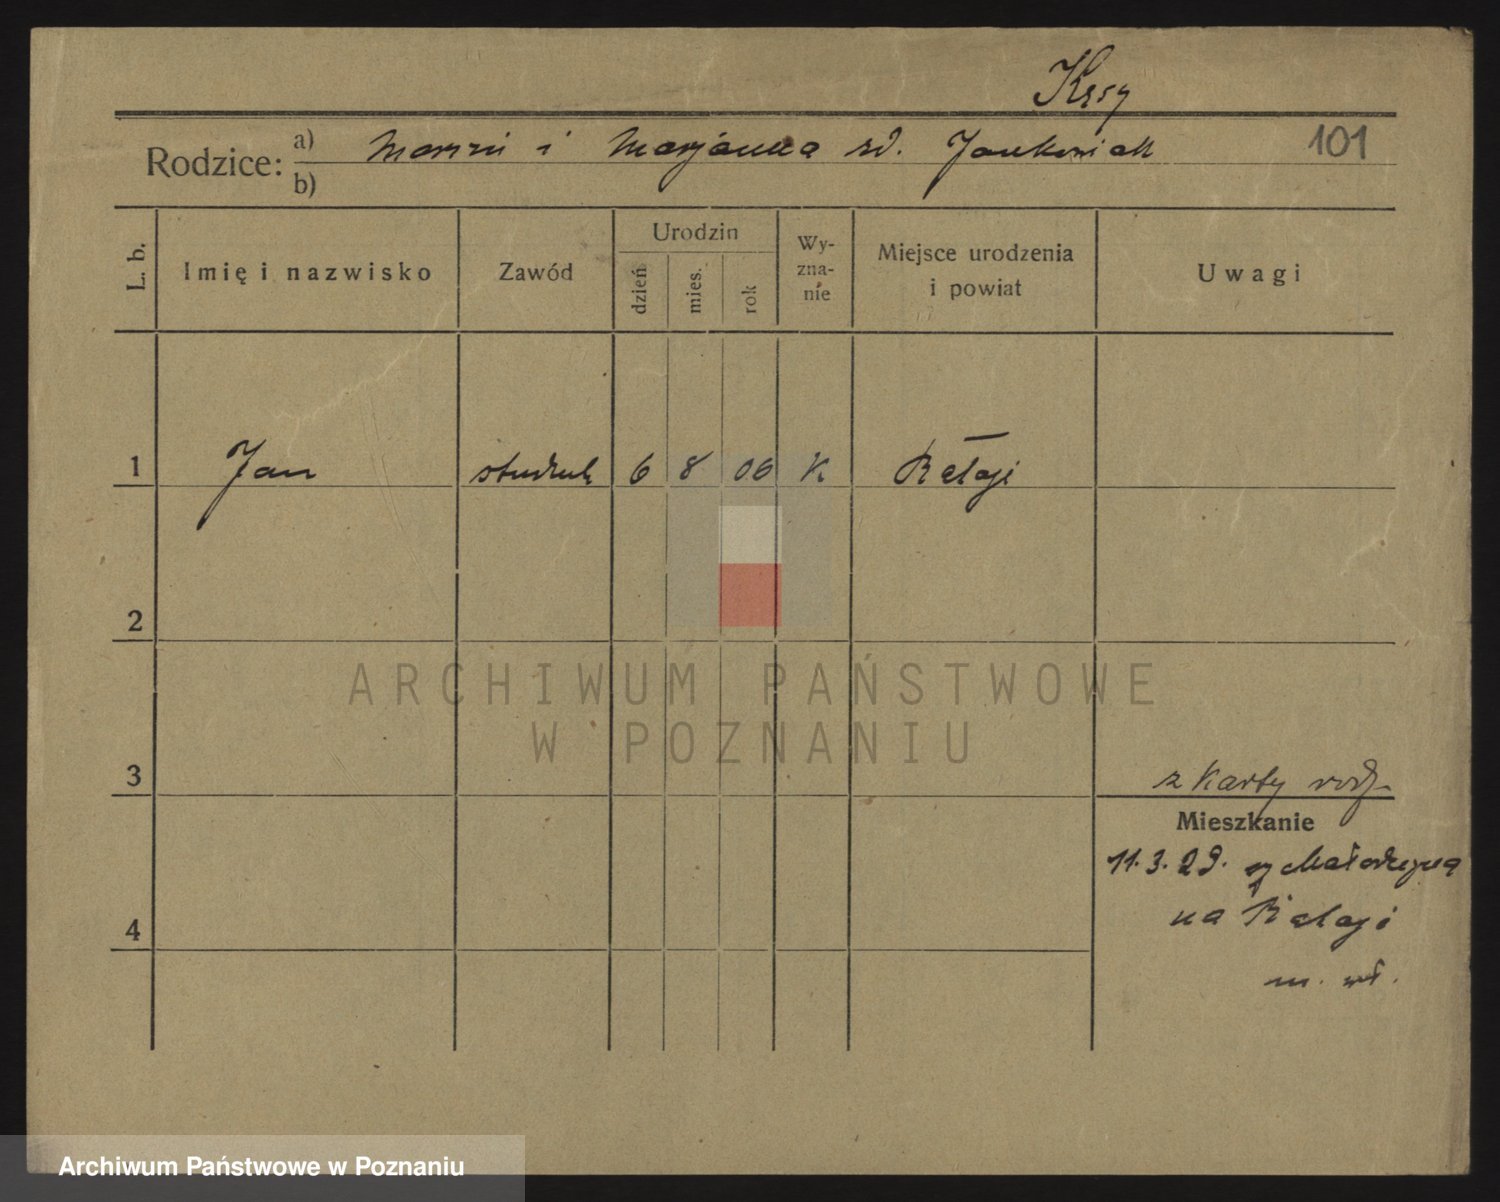 Kęsy
Rodzice: a) Marcin i Marjanna zd. Jankowiak 101
b)
L. b. Imię i nazwisko Zawód Urodzin dzień mies. rok Wy-zna-nie Miejsce urodzenia i powiat Uwagi
1 Jan student 6 8 06 K Rataji
2
ARCHIWUM PAŃSTWOWE
W POZNANIU
3 z karty rodz.
Mieszkanie
11.3.29.
na Rataji
4
m. wł.
Archiwum Państwowe w Poznaniu